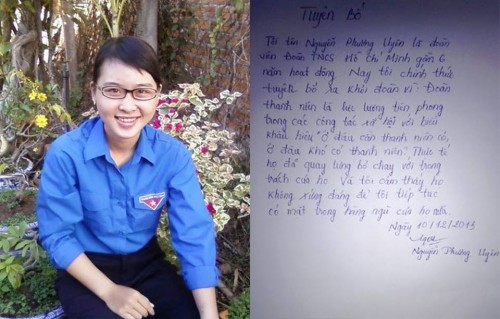 Tuyên bố
Tôi tên Nguyễn Phương Uyên là đoàn
viên Đoàn TNCS Hồ Chí Minh gần 6
năm hoạt động. Nay tôi chính thức
tuyên bố ra khỏi đoàn vì "Đoàn
thanh niên là lực lượng tiên phong
trong các công tác xã hội với biểu
khẩu hiệu "Ở đâu cần thanh niên có,
ở đâu khó có thanh niên". Thực tế
họ đã quay lưng bỏ chạy với trọng
trách của họ. Và tôi cảm thấy họ
không xứng đáng để tôi tiếp tục
có mặt trong hàng ngũ của họ nữa.
Ngày 10/12/2013
Nguyễn Phương Uyên